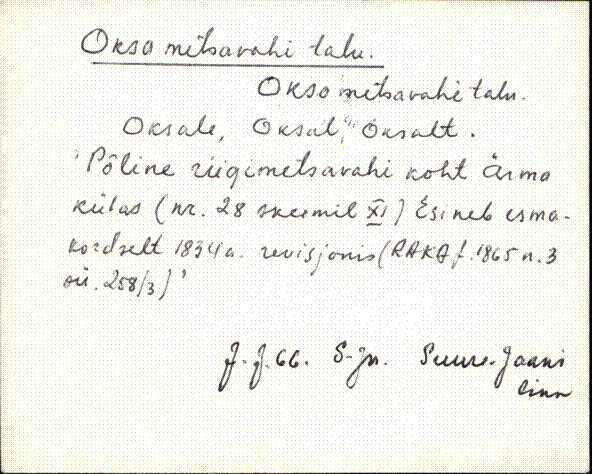 Okso metsavahi talu.
Okso metsavahi talu.
Oksale, Oksal, Oksalt.
'Põline riigimetsavahi koht Ärma
külas (nr. 28 skeemil XI) Esineb esma-
kordselt 1834 a. revisjonis (RAKA f. 1865 n. 3
sü. 258/3)'
J. J. 66. S-Jn. Suure-Jaani
linn